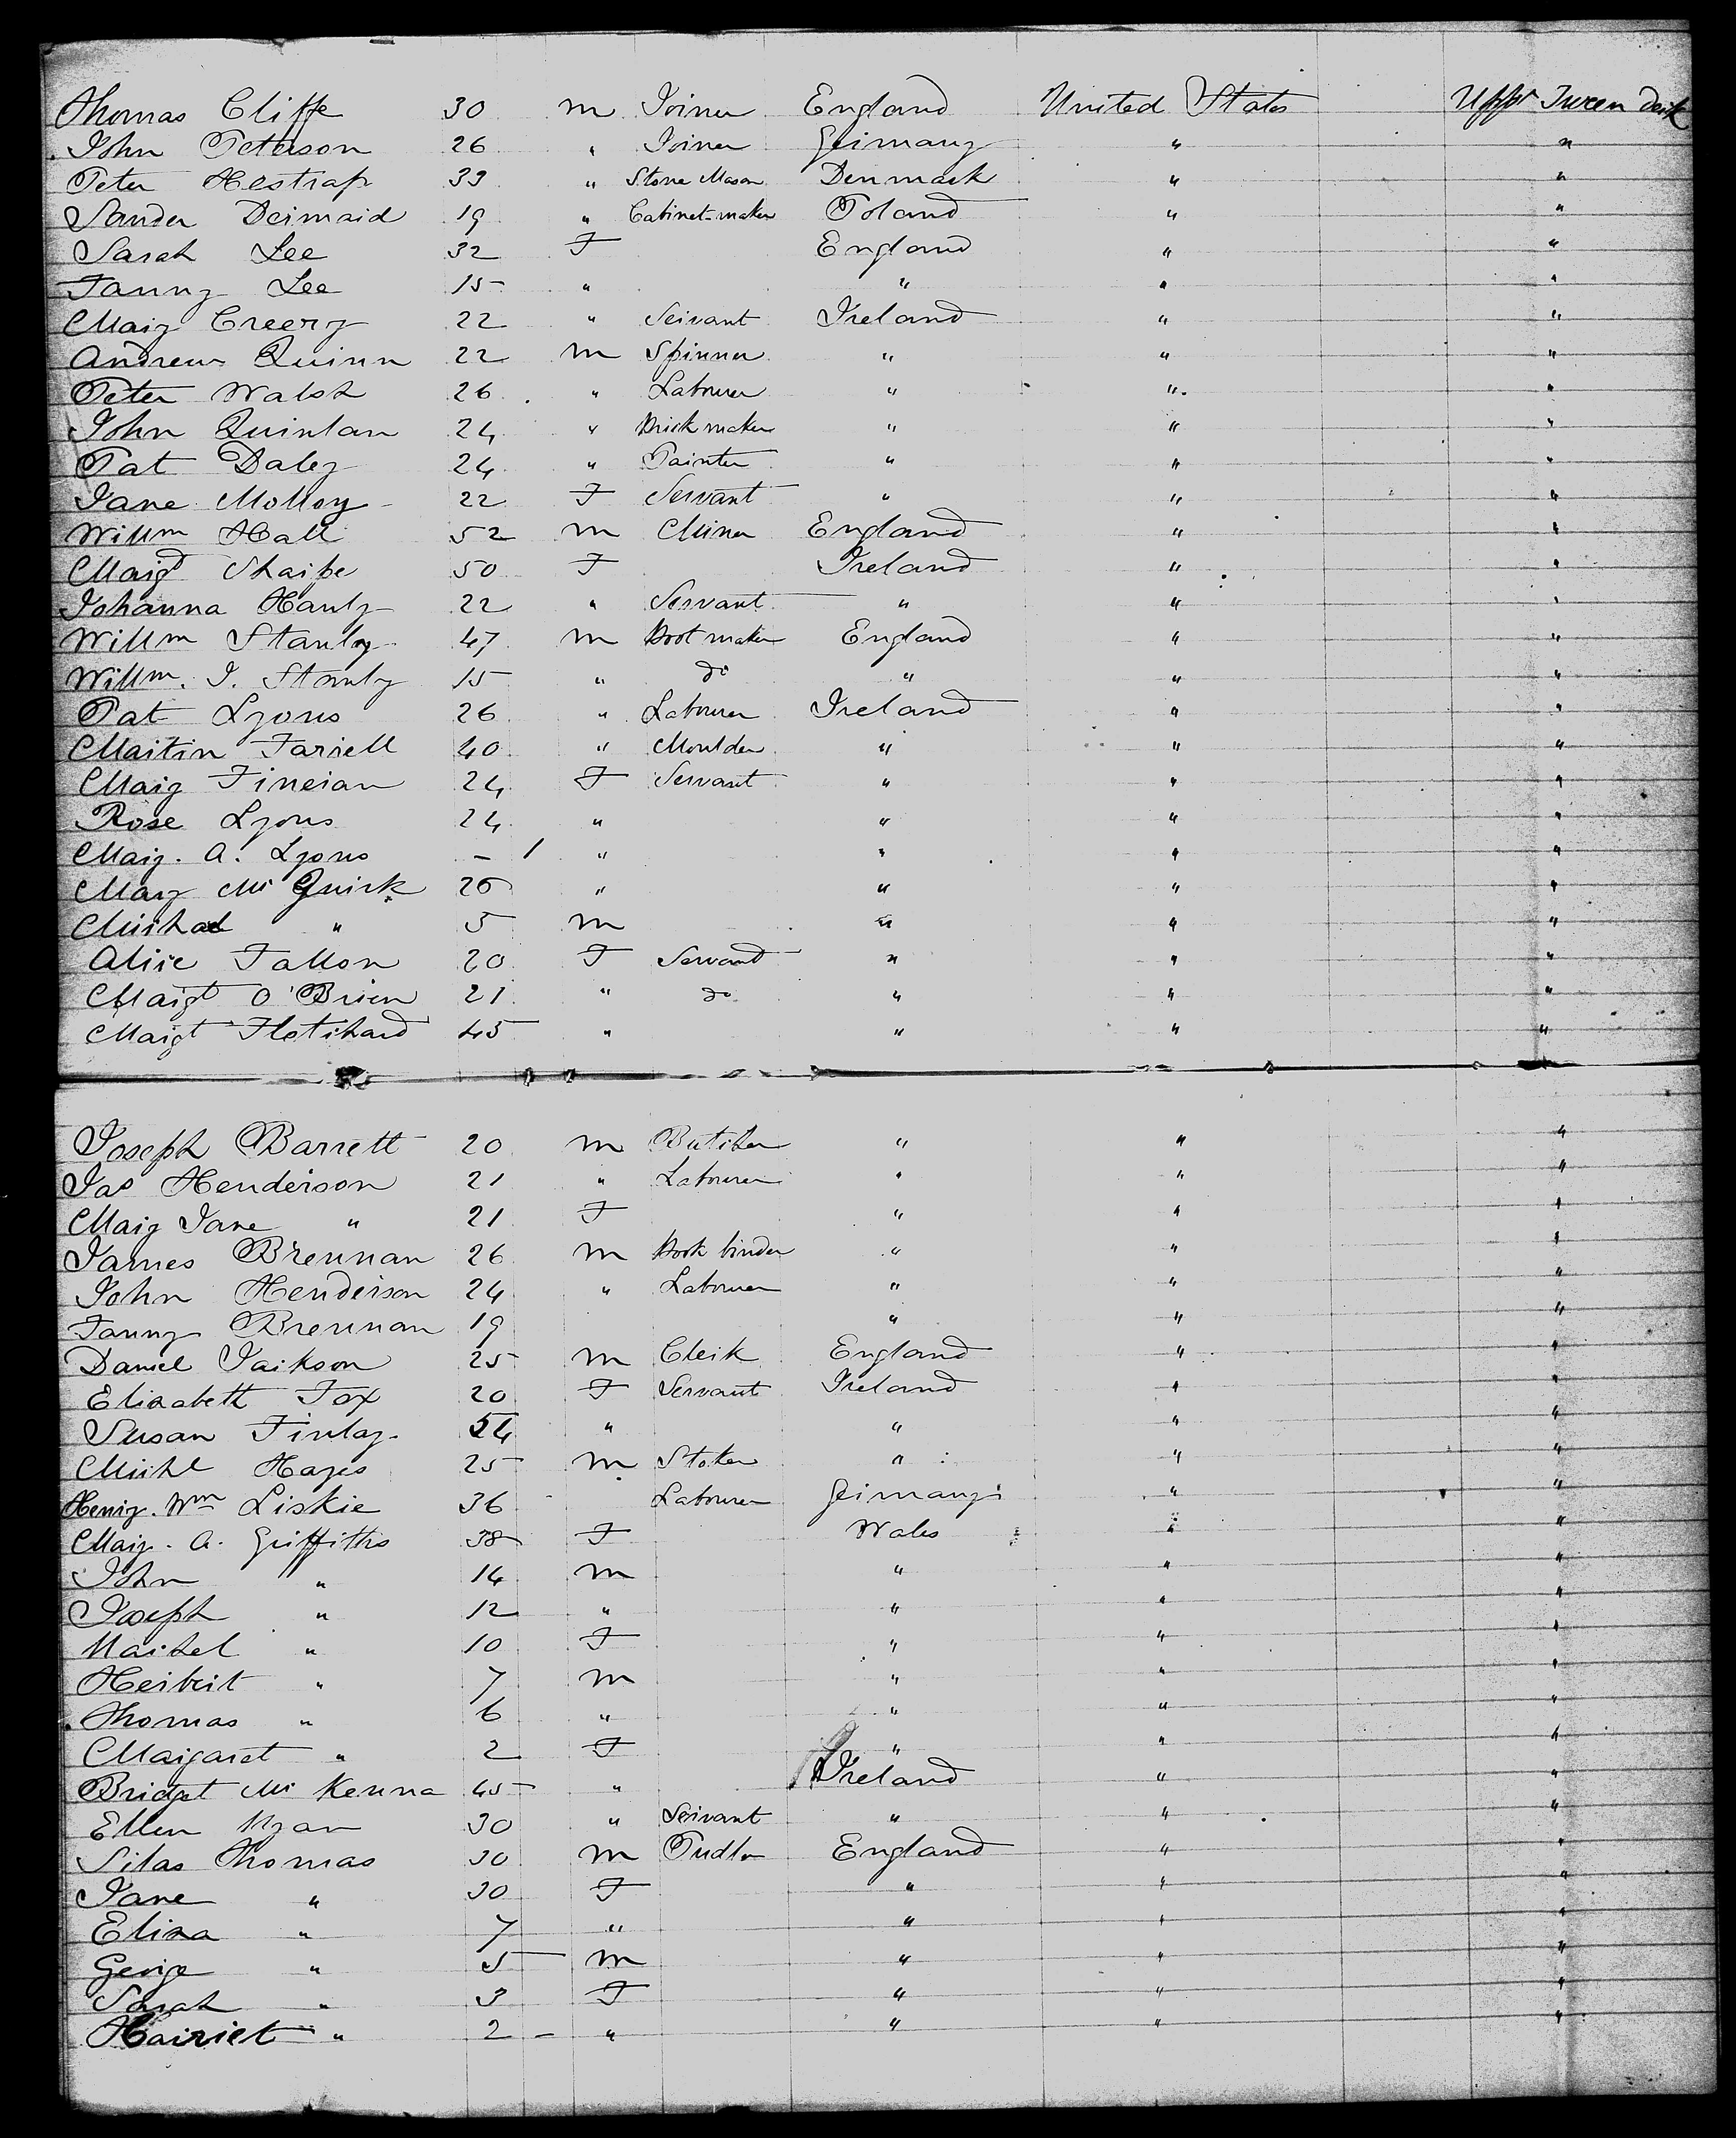 Thomas Cliffe 30 m Joiner England United States Uppr Tween Deck
John Peterson 26 " Joiner Germany " "
Peter Hestrap 33 " Stone Mason Denmark " "
Sander Dermaid 19 " Cabinet-maker Poland " "
Sarah Lee 32 F England " "
Fanny Lee 15 " " " "
Mary Creery 22 " Servant Ireland " "
Andrew Quinn 22 m Spinner " " "
Peter Walsh 26 " Labourer " " "
John Quinlan 24 " Brick maker " " "
Pat Daley 24 " Painter " " "
Jane Molloy 22 F Servant " " "
Willm Hall 52 m Miner England " "
Margt Sharpe 50 F Ireland " "
Johanna Hanly 22 " Servant " " "
Willm Stanly 47 m Boot maker England " "
Willm. J. Stanly 15 " do " " "
Pat Lyons 26 " Labourer Ireland " "
Martin Farrell 40 " Moulder " " "
Mary Fineran 24 F Servant " " "
Rose Lyons 24 " " " "
Mary. A. Lyons - 1 " " " "
Mary Mc Quirk 26 " " " "
Michael " 5 m " " "
Alice Fallon 20 F Servant " " "
Margt O'Brien 21 " do " " "
Margt 45 " " " "
Joseph Barrett 20 m Butcher " " "
Jas Henderson 21 " Labourer " " "
Mary Jane " 21 F " " "
James Brennan 26 m Book binder " " "
John Henderson 24 " Labourer " " "
Fanny Brennan 19 " " "
Daniel Jackson 25 m Clerk England " "
Elizabeth Fox 20 F Servant Ireland " "
Susan Finlay 54 " " " "
Michl Hayes 25 m Stoker " " "
Henry. Wm Liskie 36 Labourer Germany " "
Mary. A. Griffiths 38 F Wales " "
John " 14 m " " "
Joseph " 12 " " " "
Rachel " 10 F " " "
Herbert " 7 m " " "
Thomas " 6 " " " "
Margaret " 2 F " " "
Bridget Mc Kenna 45 " Ireland " "
Ellen Ryan 30 " Servant " " "
Silas Thomas 30 m Pudlr England " "
Jane " 30 F " " "
Eliza " 7 " " " "
George " 5 m " " "
Sarah " 3 F " " "
Harriet " 2 - " " " "